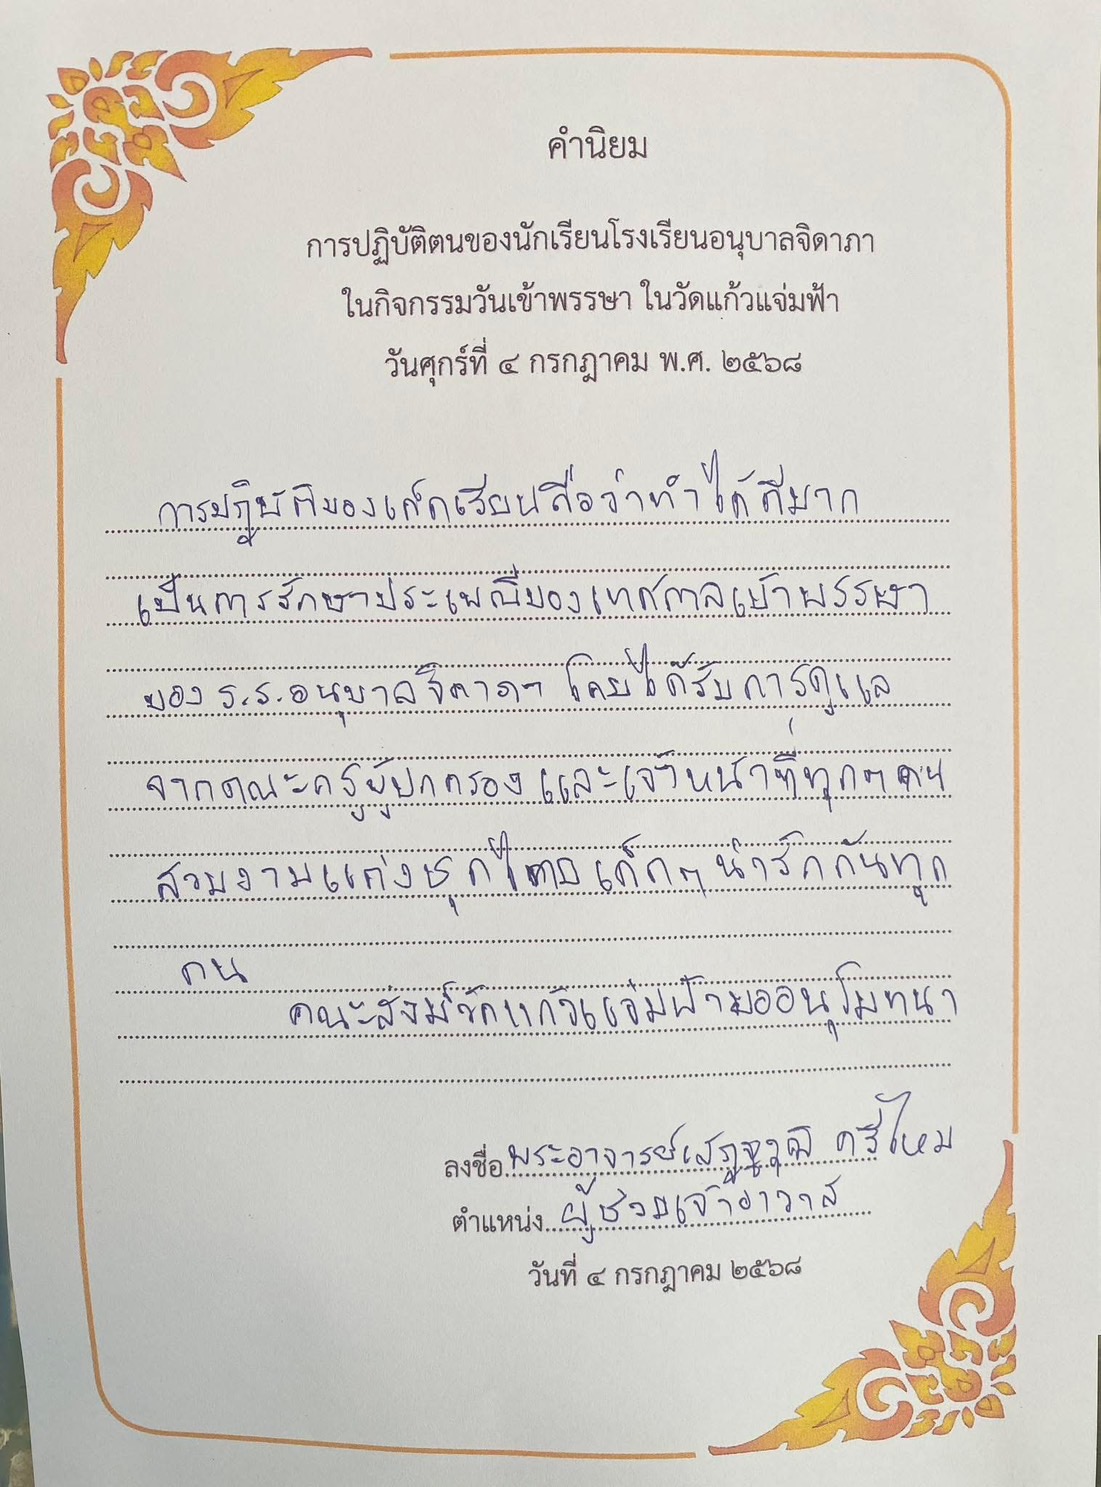 คำนิยม
การปฏิบัติตนของนักเรียนโรงเรียนอนุบาลจิดาภา
ในกิจกรรมวันเข้าพรรษา ในวัดแก้วแจ่มฟ้า
วันศุกร์ที่ ๔ กรกฎาคม พ.ศ. ๒๕๖๘
การปฏิบัติของเด็กเรียนถือว่าทำได้ดีมาก
เป็นการรักษาประเพณีของเทศกาลเข้าพรรษา
ของ ร.ร.อนุบาลจิดาภา โดยได้รับการดูแล
จากคณะครูผู้ปกครอง และเจ้าหน้าที่ทุกๆ คน
สวยงามแต่งชุดไทย เด็กๆ น่ารักกันทุก
คน
คณะสงฆ์วัดแก้วแจ่มฟ้าขออนุโมทนา
ลงชื่อ พระอาจารย์เสฏฐวุฒิ ศรีไหม
ตำแหน่ง ผู้ช่วยเจ้าอาวาส
วันที่ ๔ กรกฎาคม ๒๕๖๘